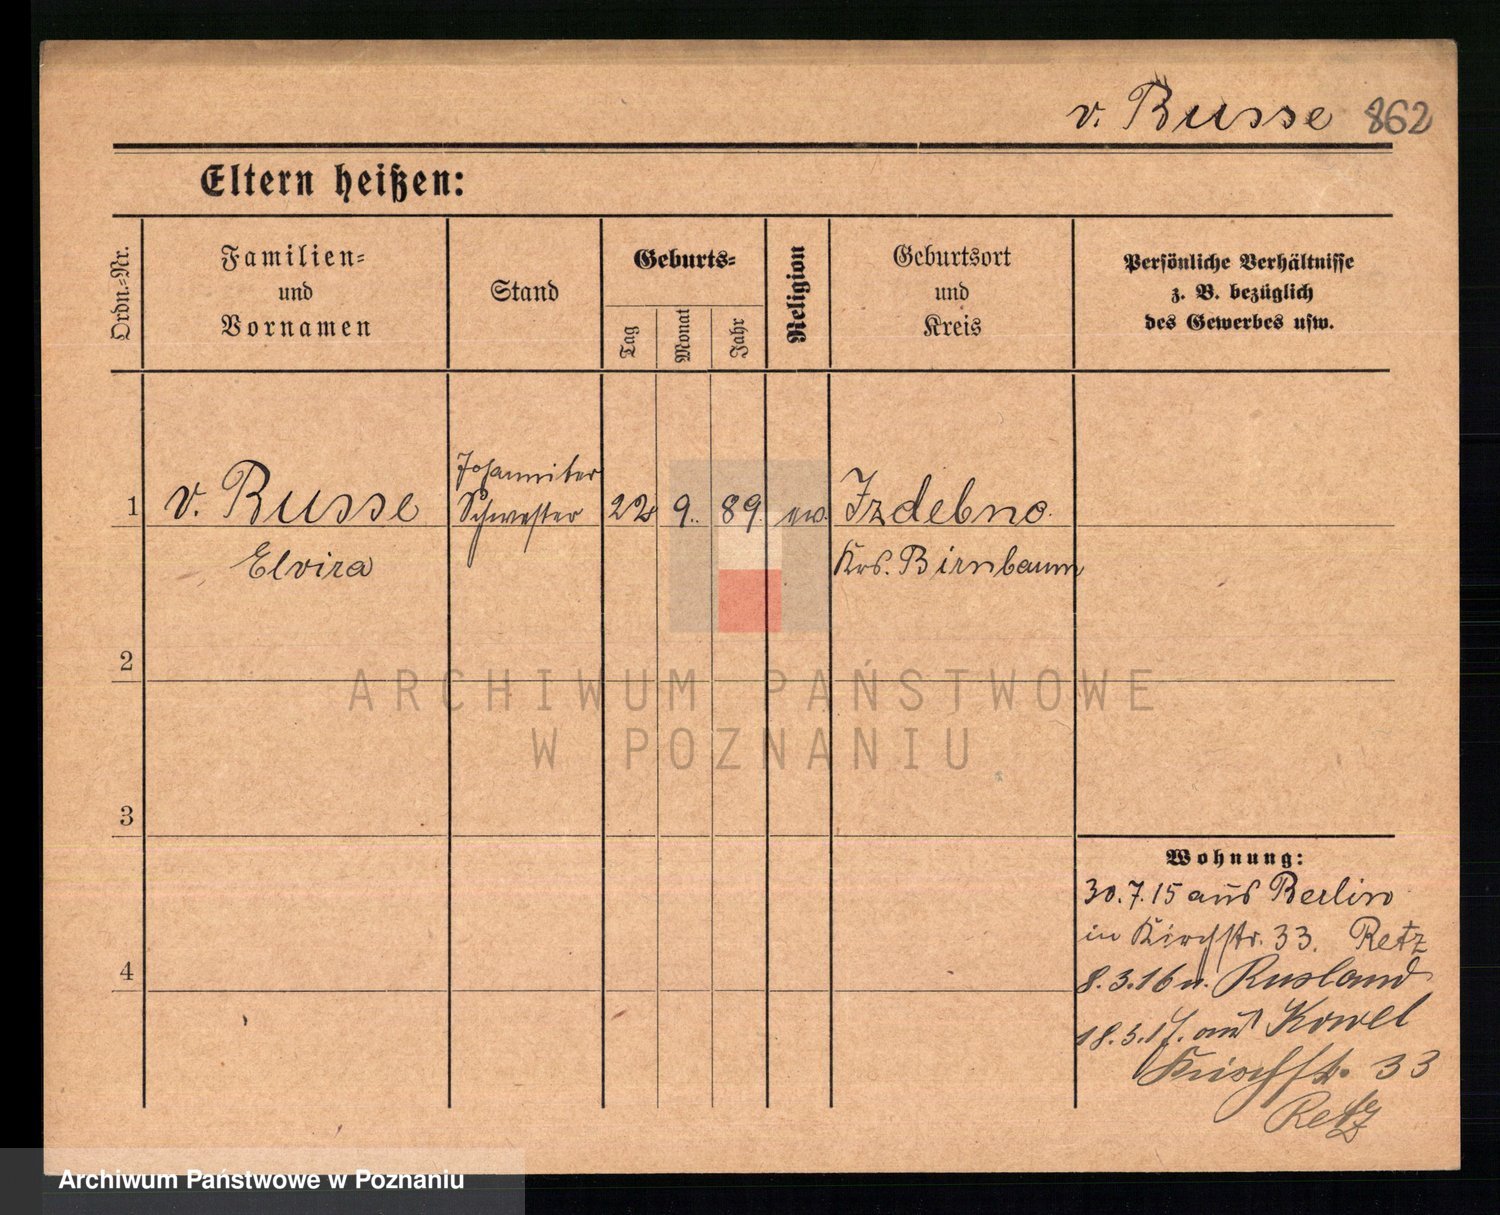 v. Busse 862
Eltern heißen:
Ordn.-Nr.
Familien-
und
Vornamen
Stand
Geburts-
Tag
Monat
Jahr
Religion
Geburtsort
und
Kreis
Persönliche Verhältnisse
z. B. bezüglich
des Gewerbes usw.
Johanniter
1 v. Busse Schwester 22 9. 89. ev. Izdebno.
Elvira Krs. Birnbaum
2
3
4
Wohnung:
30.7.15 aus Berlin
in Kirchstr. 33. Retz
8.3.16 n. Rusland
18.3.17. aus Kowel
Kirchstr. 33
Retz
ARCHIWUM PAŃSTWOWE
W POZNANIU
Archiwum Państwowe w Poznaniu